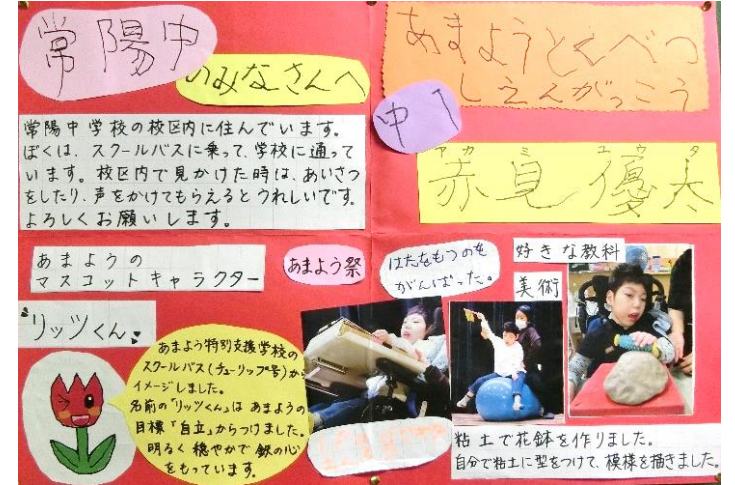 常陽中
のみなさんへ
あまようとくべつ
しえんがっこう
中1
アカミ ユウタ
赤見 優太
常陽中学校の校区内に住んでいます。
ぼくは、スクールバスに乗って、学校に通って
います。校区内で見かけた時は、あいさつ
をしたり、声をかけてもらえるとうれしいです。
よろしくお願いします。
あまようの
マスコットキャラクター
リッツくん
あまよう特別支援学校の
スクールバス(チューリップ号)から
イメージしました。
名前の「リッツくん」は あまようの
目標「自立」からつけました。
明るく 穏やかで 鉄の心
をもっています。
あまよう祭
はたをもつのを
がんばった。
好きな教科
美術
粘土で花鉢を作りました。
自分で粘土に型をつけて、模様を描きました。